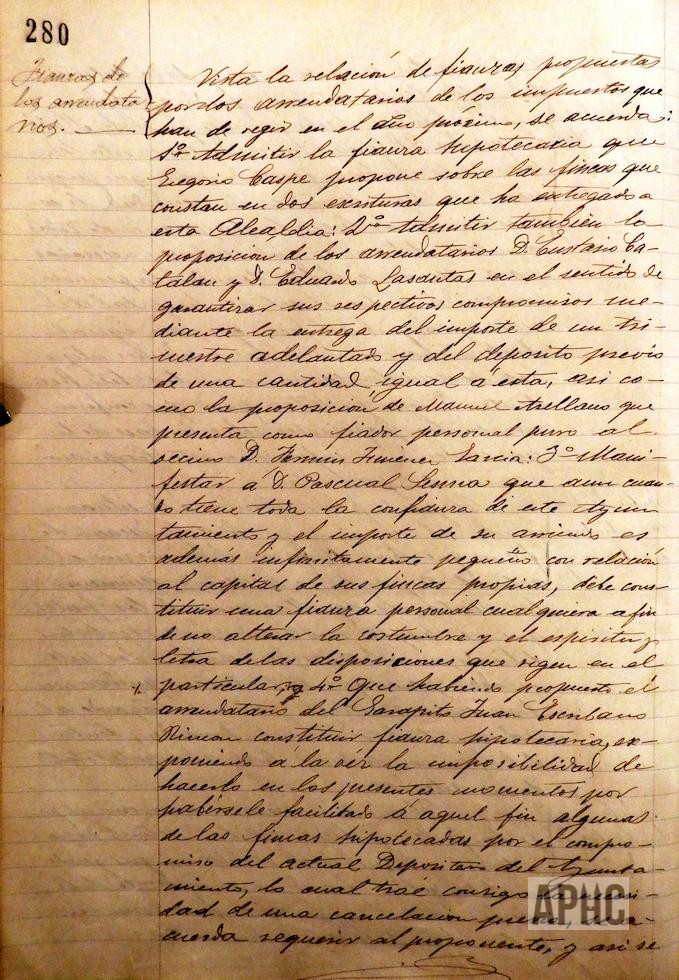 280
Fianzas de
los arrendata
rios.
Vista la relación de fianzas propuestas
por los arrendatarios de los impuestos que
han de regir en el año próximo, se acuerda:
1º Admitir la fianza hipotecaria que
Gregorio Caspe propone sobre las fincas que
constan en dos escrituras que ha entregado a
esta Alcaldia: 2º Admitir tambien la
proposicion de los arrendatarios D. Eustasio Ca-
talan y D. Eduardo Lasantas en el sentido de
garantizar sus respectivos compromisos me-
diante la entrega del importe de un tri-
mestre adelantado y del deposito previo
de una cantidad igual á esta, asi co-
mo la proposicion de Manuel Arellano que
presenta como fiador personal puro al
vecino D. Fermin Jimenez Garcia: 3º Mani-
festar á D. Pascual que aun cuan-
do tiene toda la confianza de este Ayun
tamiento y el importe de su arriendo es
además infinitamente pequeño con relación
al capital de sus fincas propias, debe cons-
tituir una fianza personal cualquiera a fin
de no alterar la costumbre y el espiritu y
letra de las disposiciones que rigen en el
particular, y 4º Que habiendo propuesto el
arrendatario del Juan Escribano
Rincon constituir fianza hipotecaria, ex-
poniendo a la vez la imposibilidad de
hacerlo en los presentes momentos por
habersele facilitado á aquel fin algunas
de las fincas hipotecadas por el compro-
miso del actual Depositario del Ayunta-
miento, lo cual traé consigo
dad de una cancelacion previa, se a-
cuerda requerir al proponente, y asi se
APHC